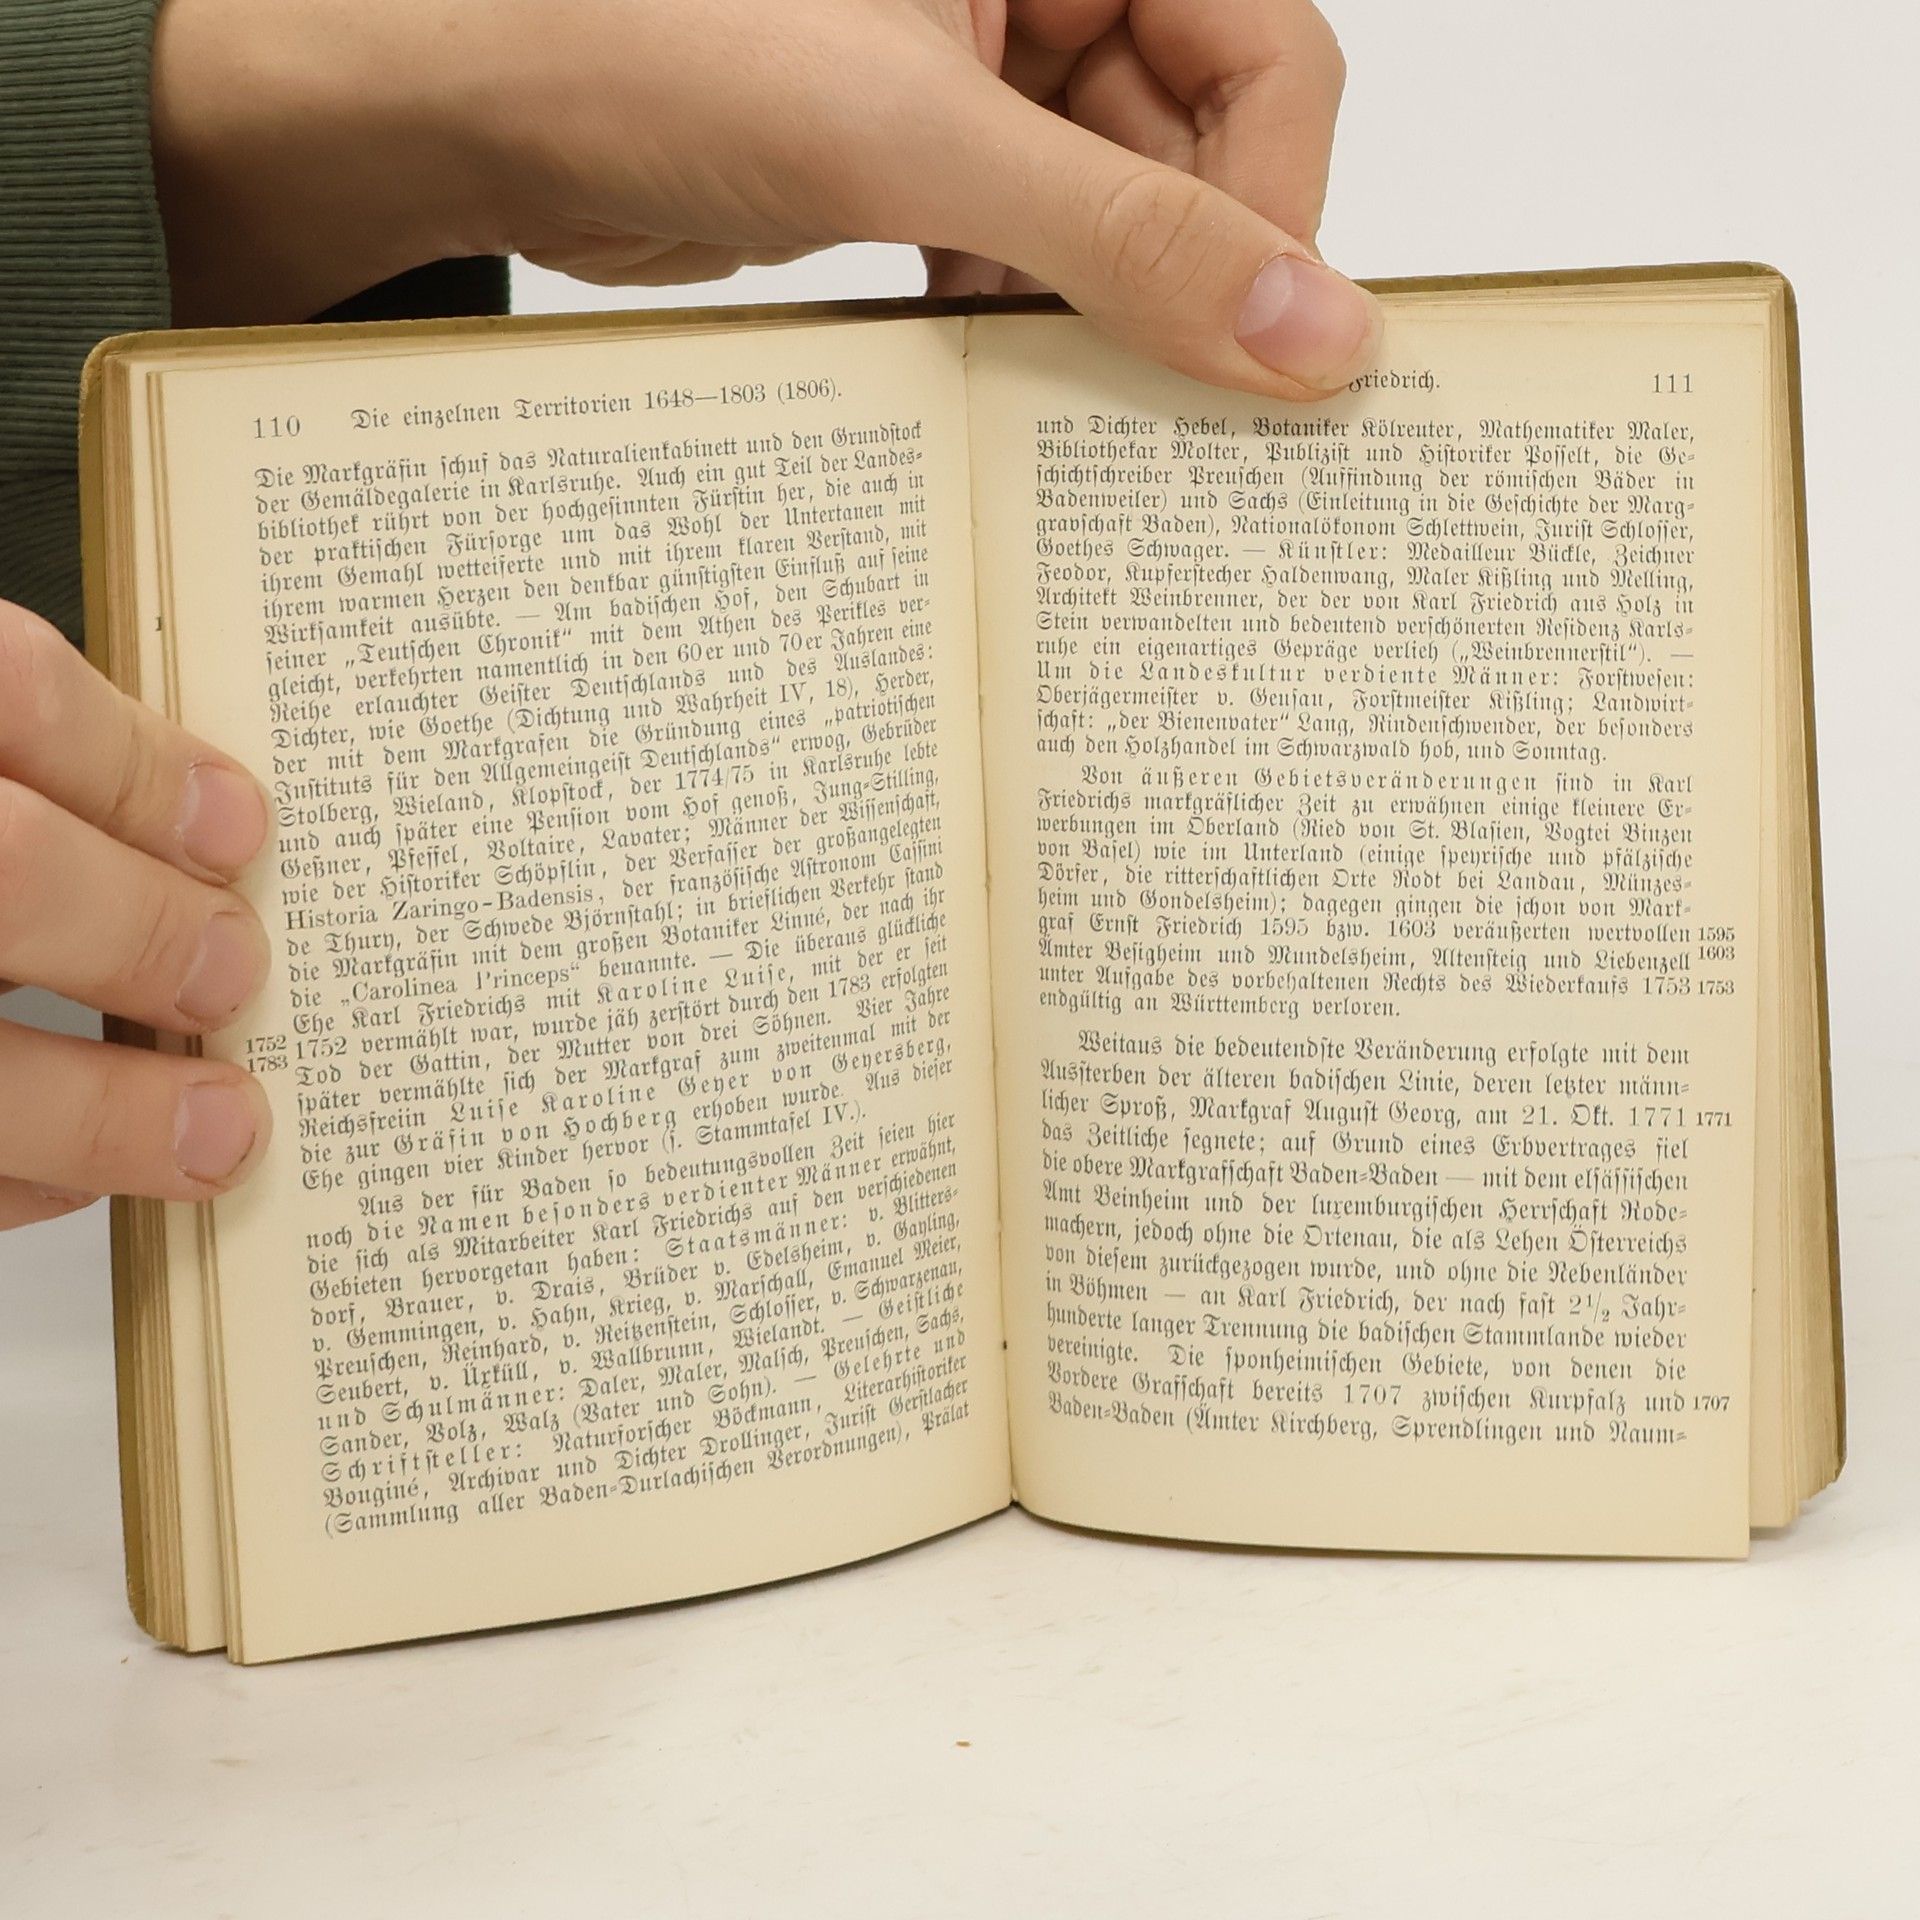 110 Die einzelnen Territorien 1648—1803 (1806).
Die Markgräfin schuf das Naturalienkabinett und den Grundstock
der Gemäldegalerie in Karlsruhe. Auch ein gut Teil der Landes-
bibliothek rührt von der hochgesinnten Fürstin her, die auch in
der praktischen Fürsorge um das Wohl der Untertanen mit
ihrem Gemahl wetteiferte und mit ihrem klaren Verstand, mit
ihrem warmen Herzen den denkbar günstigsten Einfluß auf seine
Wirksamkeit ausübte. — Am badischen Hof, den Schubart in
seiner „Teutschen Chronik“ mit dem Athen des Perikles ver-
gleicht, verkehrten namentlich in den 60er und 70er Jahren eine
Reihe erlauchter Geister Deutschlands und des Auslandes:
Dichter, wie Goethe (Dichtung und Wahrheit IV, 18), Herder,
der mit dem Markgrafen die Gründung eines „patriotischen
Instituts für den Allgemeingeist Deutschlands“ erwog, Gebrüder
Stolberg, Wieland, Klopstock, der 1774/75 in Karlsruhe lebte
und auch später eine Pension vom Hof genoß, Jung-Stilling,
Geßner, Pfeffel, Voltaire, Lavater; Männer der Wissenschaft,
wie der Historiker Schöpflin, der Verfasser der großangelegten
Historia Zaringo-Badensis, der französische Astronom Cassini
de Thury, der Schwede Björnstahl; in brieflichen Verkehr stand
die Markgräfin mit dem großen Botaniker Linné, der nach ihr
die „Carolinea Princeps“ benannte. — Die überaus glückliche
Ehe Karl Friedrichs mit Karoline Luise, mit der er seit
1752 1752 vermählt war, wurde jäh zerstört durch den 1783 erfolgten
1783 Tod der Gattin, der Mutter von drei Söhnen. Vier Jahre
später vermählte sich der Markgraf zum zweitenmal mit der
Reichsfreiin Luise Karoline Geyer von Geyersberg,
die zur Gräfin von Hochberg erhoben wurde. Aus dieser
Ehe gingen vier Kinder hervor (s. Stammtafel IV.).
Aus der für Baden so bedeutungsvollen Zeit seien hier
noch die Namen besonders verdienter Männer erwähnt,
die sich als Mitarbeiter Karl Friedrichs auf den verschiedenen
Gebieten hervorgetan haben: Staatsmänner: v. Blitters-
dorf, Brauer, v. Drais, Brüder v. Edelsheim, v. Gayling,
v. Gemmingen, v. Hahn, Krieg, v. Marschall, Emanuel Meier,
Preuschen, Reinhard, v. Reitzenstein, Schlosser, v. Schwarzenau,
Seubert, v. Üxküll, v. Wallbrunn, Wielandt. — Geistliche
und Schulmänner: Daler, Maler, Malsch, Preuschen, Sachs,
Sander, Volz, Walz (Vater und Sohn). — Gelehrte und
Schriftsteller: Naturforscher Böckmann, Literarhistoriker
Bouginé, Archivar und Dichter Drollinger, Jurist Gerstlacher
(Sammlung aller Baden-Durlachischen Verordnungen), Prälat
Friedrich. 111
und Dichter Hebel, Botaniker Kölreuter, Mathematiker Maler,
Bibliothekar Molter, Publizist und Historiker Posselt, die Ge-
schichtschreiber Preuschen (Auffindung der römischen Bäder in
Badenweiler) und Sachs (Einleitung in die Geschichte der Marg-
gravschaft Baden), Nationalökonom Schlettwein, Jurist Schlosser,
Goethes Schwager. — Künstler: Medailleur Bückle, Zeichner
Feodor, Kupferstecher Haldenwang, Maler Kißling und Melling,
Architekt Weinbrenner, der der von Karl Friedrich aus Holz in
Stein verwandelten und bedeutend verschönerten Residenz Karls-
ruhe ein eigenartiges Gepräge verlieh („Weinbrennerstil“). —
Um die Landeskultur verdiente Männer: Forstwesen:
Oberjägermeister v. Geusau, Forstmeister Kißling; Landwirt-
schaft: „der Bienenvater“ Lang, Rindenschwender, der besonders
auch den Holzhandel im Schwarzwald hob, und Sonntag.
Von äußeren Gebietsveränderungen sind in Karl
Friedrichs markgräflicher Zeit zu erwähnen einige kleinere Er-
werbungen im Oberland (Ried von St. Blasien, Vogtei Binzen
von Basel) wie im Unterland (einige speyrische und pfälzische
Dörfer, die ritterschaftlichen Orte Rodt bei Landau, Münzes-
heim und Gondelsheim); dagegen gingen die schon von Mark-
graf Ernst Friedrich 1595 bzw. 1603 veräußerten wertvollen 1595
Ämter Besigheim und Mundelsheim, Altensteig und Liebenzell 1603
unter Aufgabe des vorbehaltenen Rechts des Wiederkaufs 1753 1753
endgültig an Württemberg verloren.
Weitaus die bedeutendste Veränderung erfolgte mit dem
Aussterben der älteren badischen Linie, deren letzter männ-
licher Sproß, Markgraf August Georg, am 21. Okt. 1771 1771
das Zeitliche segnete; auf Grund eines Erbvertrages fiel
die obere Markgrafschaft Baden-Baden — mit dem elsässischen
Amt Beinheim und der luxemburgischen Herrschaft Rode-
machern, jedoch ohne die Ortenau, die als Lehen Österreichs
von diesem zurückgezogen wurde, und ohne die Nebenländer
in Böhmen — an Karl Friedrich, der nach fast 2 1/2 Jahr-
hunderte langer Trennung die badischen Stammlande wieder
vereinigte. Die sponheimischen Gebiete, von denen die
Vordere Grafschaft bereits 1707 zwischen Kurpfalz und 1707
Baden-Baden (Ämter Kirchberg, Sprendlingen und Naum-